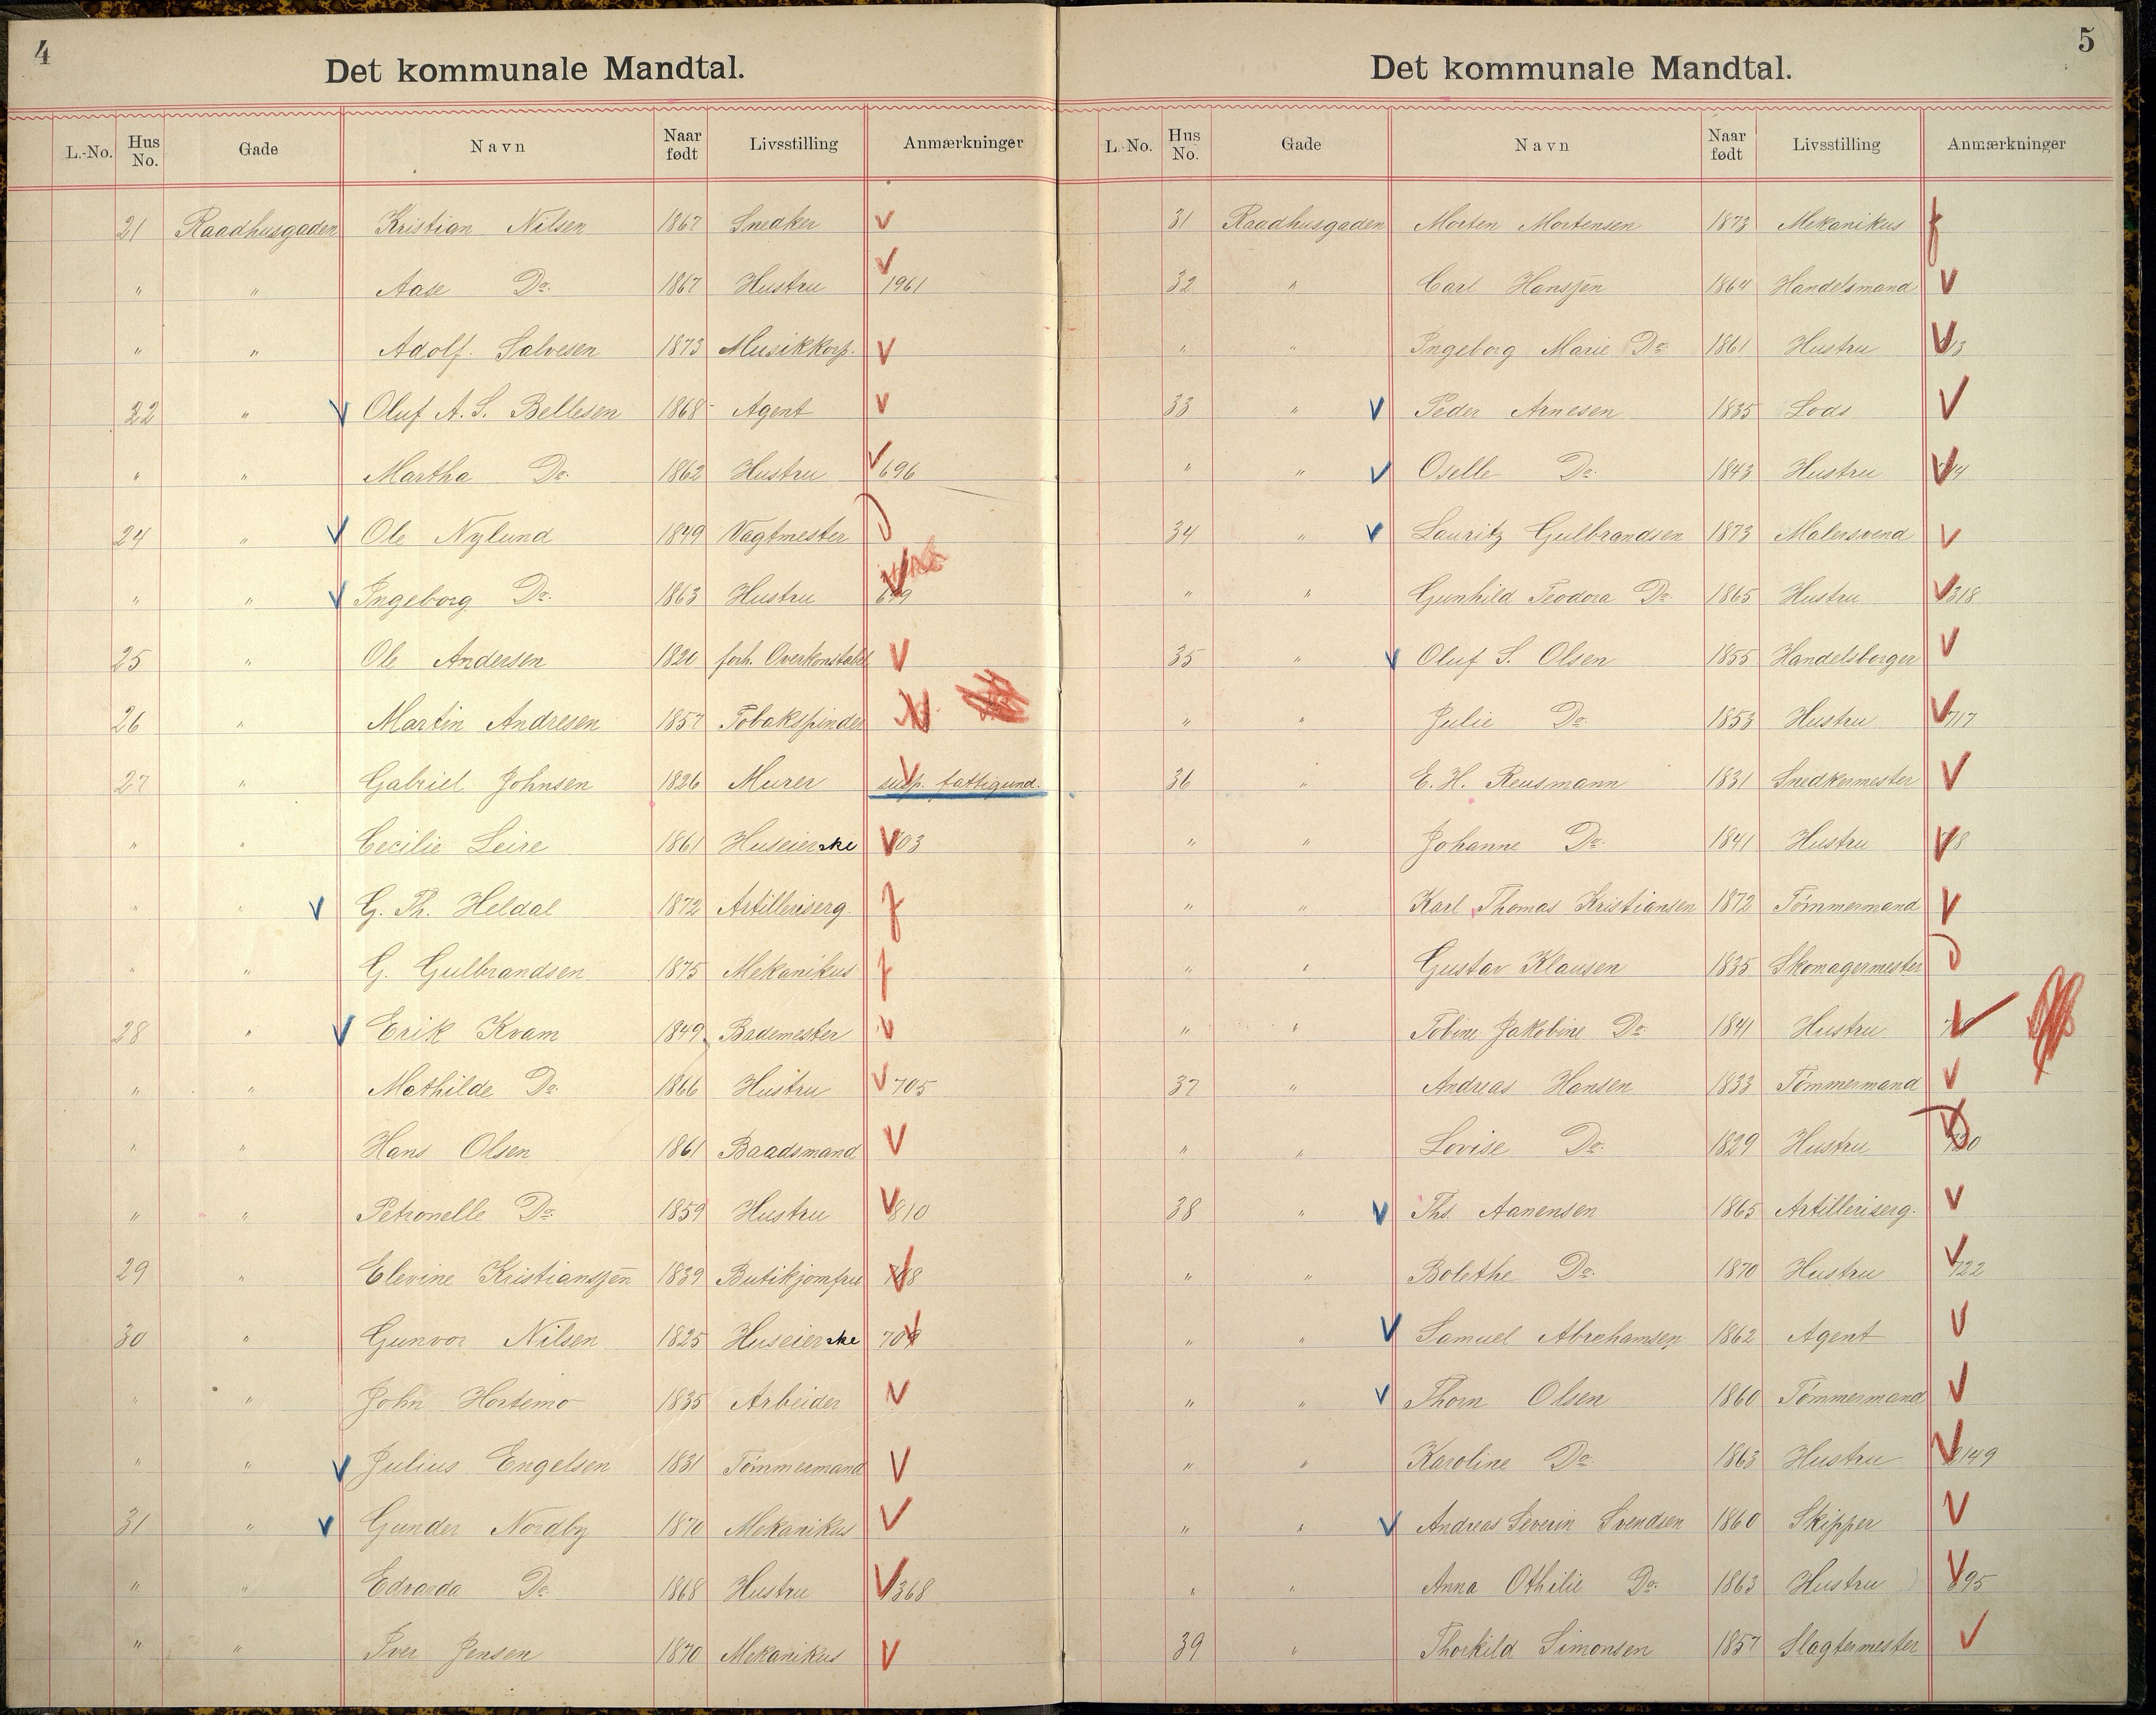 4
Det kommunale Mandtal.
L.-No. Hus No. Gade Navn Naar født Livsstilling Anmærkninger
21 Raadhusgaden Kristian Nilsen 1867 Snedker
" " Aase Do. 1867 Hustru 1961
" " Adolf Salvesen 1873 Musikkorp.
22 " Oluf A. S. Bellesen 1868 Agent
" " Martha Do. 1862 Hustru 696
24 " Ole Nylund 1849 Vagtmester
" " Ingeborg Do. 1863 Hustru 699
25 " Ole Andersen 1820 forh. Overkonstabel
26 " Martin Andresen 1857 Tobakspinder
27 " Gabriel Johnsen 1826 Murer susp. fattigund.
" " Cecilie Leire 1861 Huseierske 703
" " G. Th. Heldal 1872 Artilleriserg.
" " G. Gulbrandsen 1875 Mekanikus
28 " Erik Kvam 1849 Bademester
" " Mathilde Do. 1866 Hustru 705
" " Hans Olsen 1861 Baadsmand
" " Petronelle Do. 1859 Hustru 810
29 " Elevine Kristianssen 1839 Butikjomfru 708
30 " Gunvor Nilsen 1825 Huseierske 709
" " John Hortemo 1835 Arbeider
" " Julius Engelsen 1831 Tømmermand
31 " Gunder Nordby 1870 Mekanikus
" " Edvarda Do. 1868 Hustru 1368
" " Iver Jensen 1870 Mekanikus
5
Det kommunale Mandtal.
L.-No. Hus No. Gade Navn Naar født Livsstilling Anmærkninger
31 Raadhusgaden Morten Mortensen 1873 Mekanikus
32 " Carl Hanssen 1864 Handelsmand
" " Ingeborg Marie Do. 1861 Hustru 713
33 " Peder Arnesen 1835 Lods
" " Oselle Do. 1843 Hustru 714
34 " Lauritz Gulbrandsen 1873 Malersvend
" " Gunhild Teodora Do. 1865 Hustru 318
35 " Oluf S. Olsen 1855 Handelsborger
" " Julie Do. 1853 Hustru 717
36 " E. H. Reusmann 1831 Snedkermester
" " Johanne Do. 1841 Hustru 718
" " Karl Thomas Kristiansen 1872 Tømmermand
" " Gustav Klausen 1835 Skomagermester
" " Tobine Jakobine Do. 1841 Hustru
37 " Andreas Hansen 1833 Tømmermand
" " Lovise Do. 1829 Hustru 720
38 " Ths. Aanensen 1865 Artilleriserg.
" " Bolethe Do. 1870 Hustru 722
" " Samuel Abrahamsen 1862 Agent
" " Thorn Olsen 1860 Tømmermand
" " Karoline Do. 1863 Hustru 2149
" " Andreas Severin Svendsen 1860 Skipper
" " Anna Othilie Do. 1863 Hustru 895
39 " Thorkild Simonsen 1857 Slagtermester